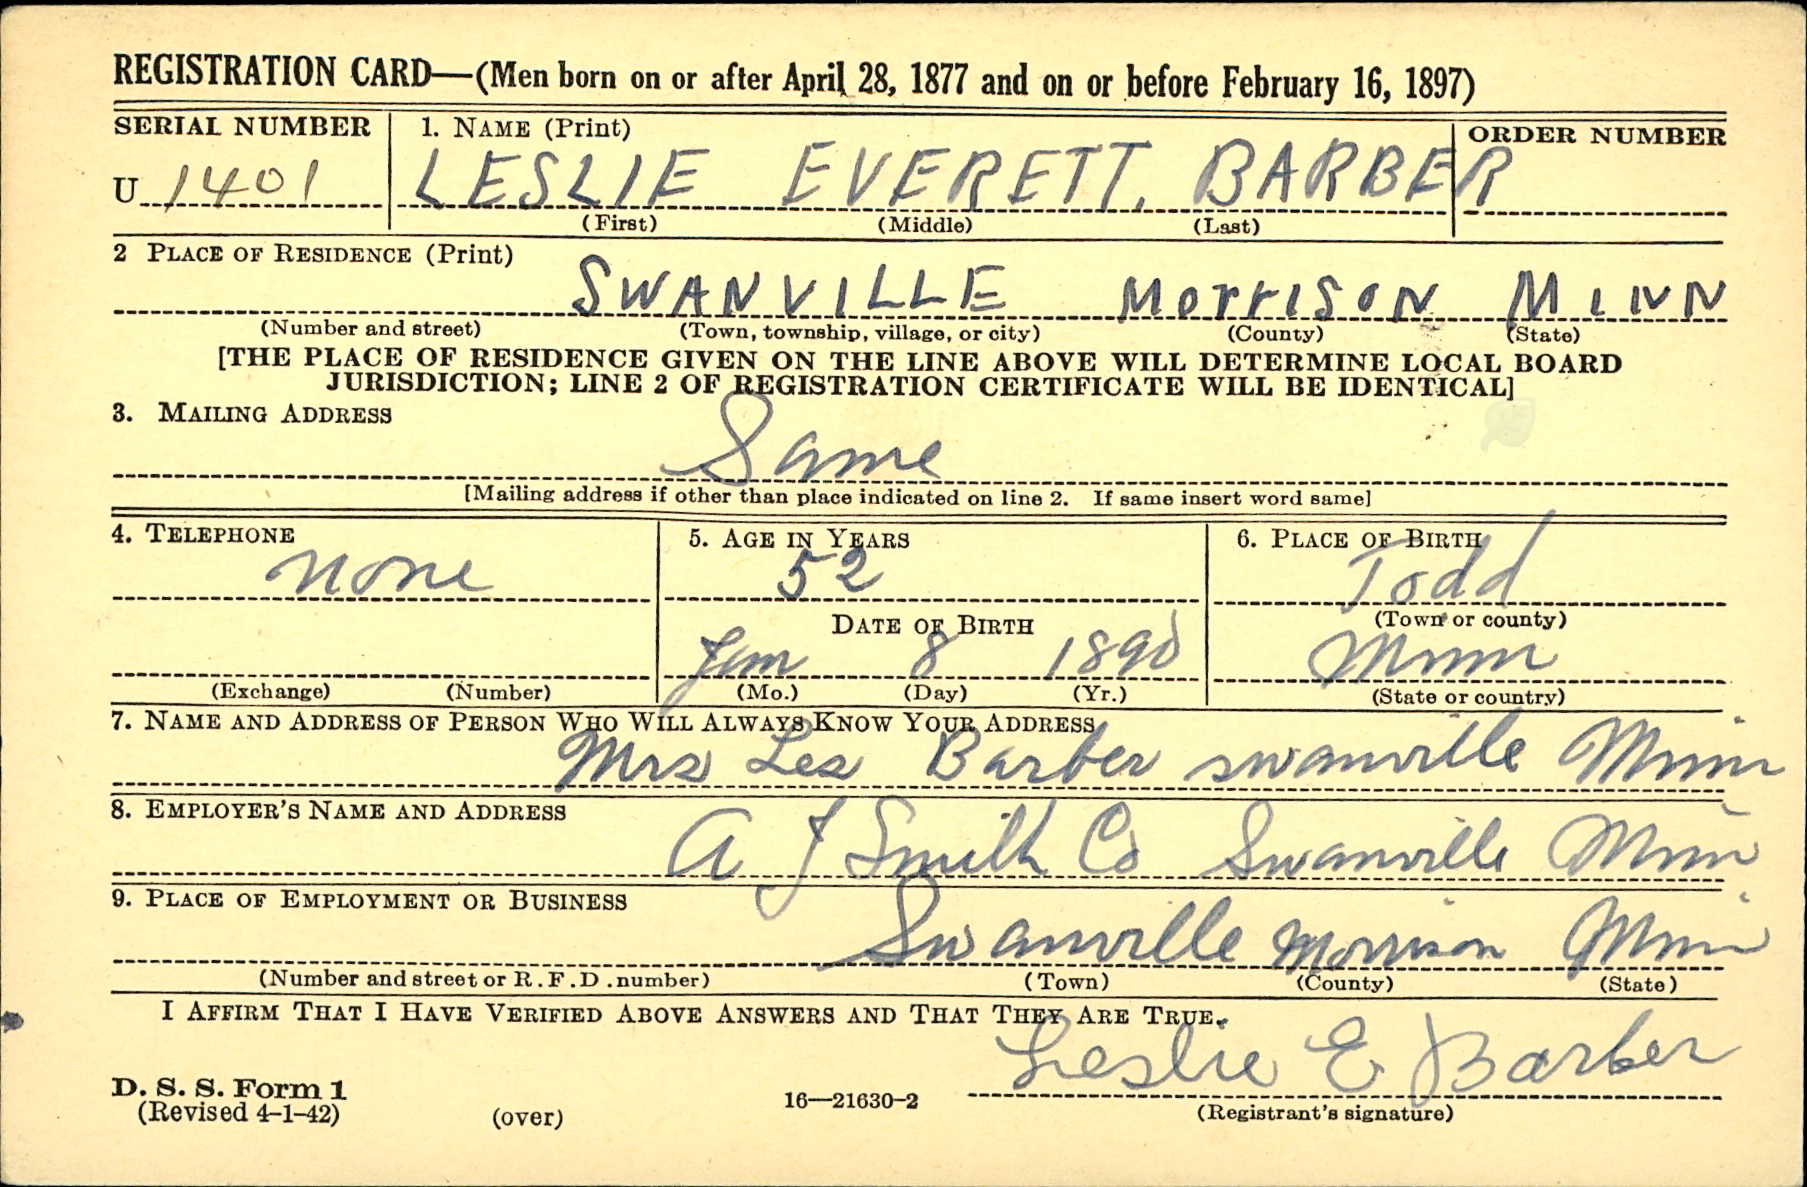 REGISTRATION CARD—(Men born on or after April 28, 1877 and on or before February 16, 1897)
SERIAL NUMBER 1. NAME (Print) ORDER NUMBER
U 1401 LESLIE EVERETT. BARBER
(First) (Middle) (Last)
2 PLACE OF RESIDENCE (Print)
SWANVILLE MorrISON MINN
(Number and street) (Town, township, village, or city) (County) (State)
[THE PLACE OF RESIDENCE GIVEN ON THE LINE ABOVE WILL DETERMINE LOCAL BOARD
JURISDICTION; LINE 2 OF REGISTRATION CERTIFICATE WILL BE IDENTICAL]
3. MAILING ADDRESS
Same
[Mailing address if other than place indicated on line 2. If same insert word same]
4. TELEPHONE 5. AGE IN YEARS 6. PLACE OF BIRTH
none 52 Todd
(Town or county)
DATE OF BIRTH
Jan 8 1890 Minn
(Exchange) (Number) (Mo.) (Day) (Yr.) (State or country)
7. NAME AND ADDRESS OF PERSON WHO WILL ALWAYS KNOW YOUR ADDRESS
Mrs Les Barber swanville Minn
8. EMPLOYER'S NAME AND ADDRESS
A J Smith Co Swanville Minn
9. PLACE OF EMPLOYMENT OR BUSINESS
Swanville Morrison Minn
(Number and street or R.F.D. number) (Town) (County) (State)
I AFFIRM THAT I HAVE VERIFIED ABOVE ANSWERS AND THAT THEY ARE TRUE.
Leslie E Barber
D. S. S. Form 1
(Revised 4-1-42) (over) 16—21630-2 (Registrant's signature)